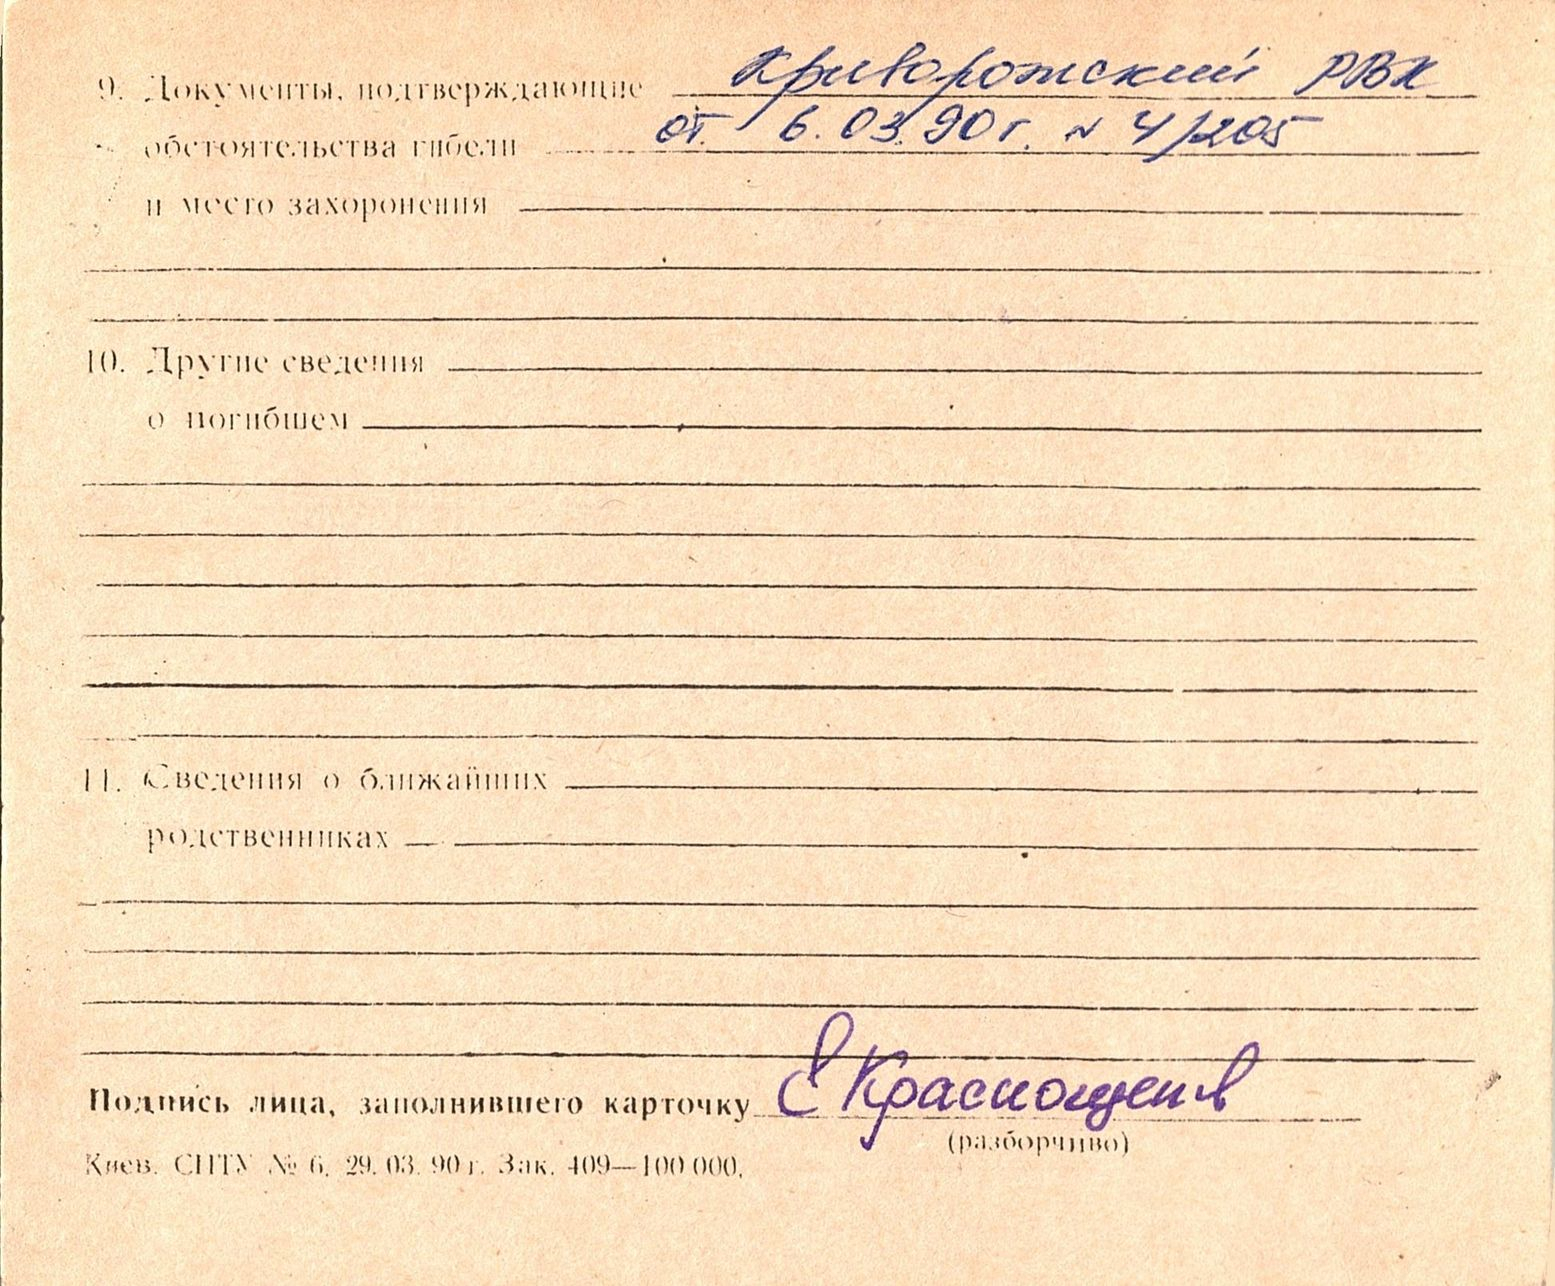 9. Документы, подтверждающие Криворожский РВК
обстоятельства гибели от 6.03.90 г. N 4/205
и место захоронения
10. Другие сведения
о погибшем
11. Сведения о ближайших
родственниках
Подпись лица, заполнившего карточку
(разборчиво)
Киев. СПТУ № 6. 29. 03. 90 г. Зак. 409—100 000.